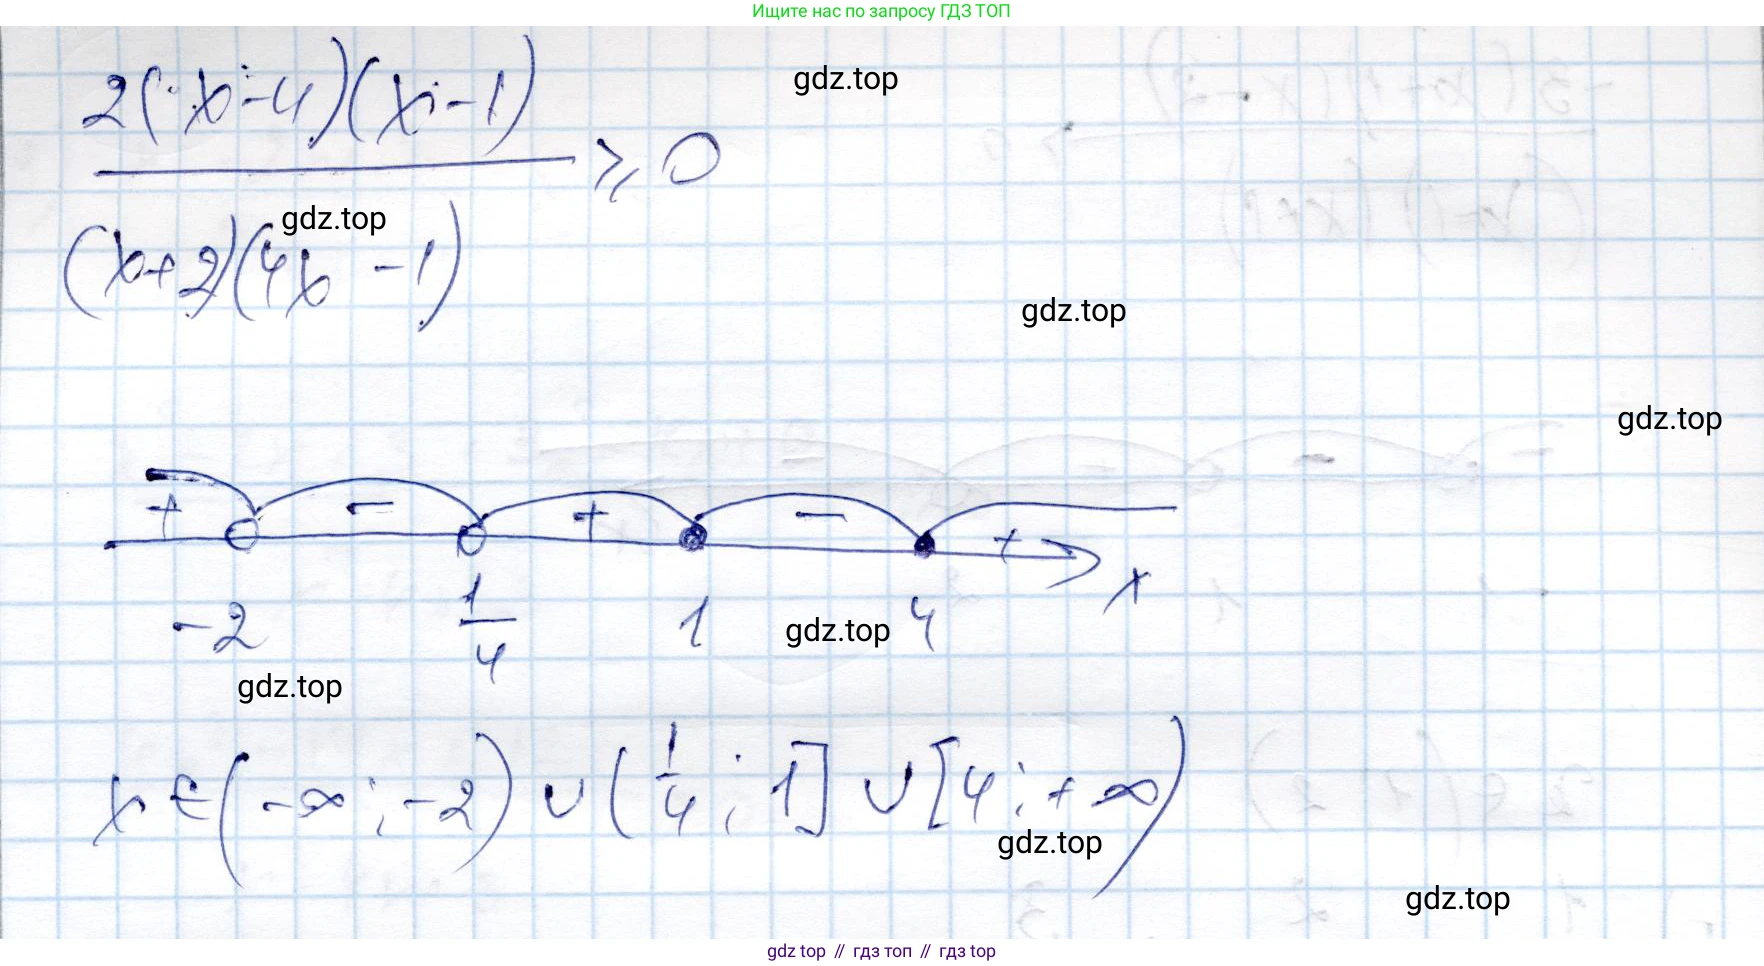 Ищите нас по запросу ГДЗ ТОП
2(x-4)(x-1)
⩾ 0
(x+2)(4x-1)
gdz.top
gdz.top
gdz.top
gdz.top
+ - + - +
-2 1/4 1 4 x
gdz.top
gdz.top
x ∈ (-∞; -2) ∪ (1/4; 1] ∪ [4; +∞)
gdz.top
gdz.top
gdz top // гдз топ // гдз top